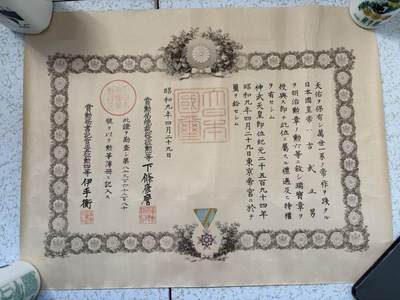 天佑ヲ保有シ萬世一系ノ帝祚ヲ踐タル
日本國皇帝ハ吉武男
ヲ明治勳章ノ勳六等ニ敍シ瑞寶章ヲ
授與ス即チ此位ニ屬スル禮遇及ヒ特權
ヲ有セシム
神武天皇即位紀元二千五百九十四年
昭和九年四月二十九日東京帝宮ニ於テ
璽ヲ鈐セシム
大日本國璽
昭和九年四月二十九日
賞勳局總裁勳等下條康麿
此證ヲ勘査シ第八十
號ヲ以テ勳等簿册ニ記入ス
賞勳局書記官正五位勳四等伊手衛